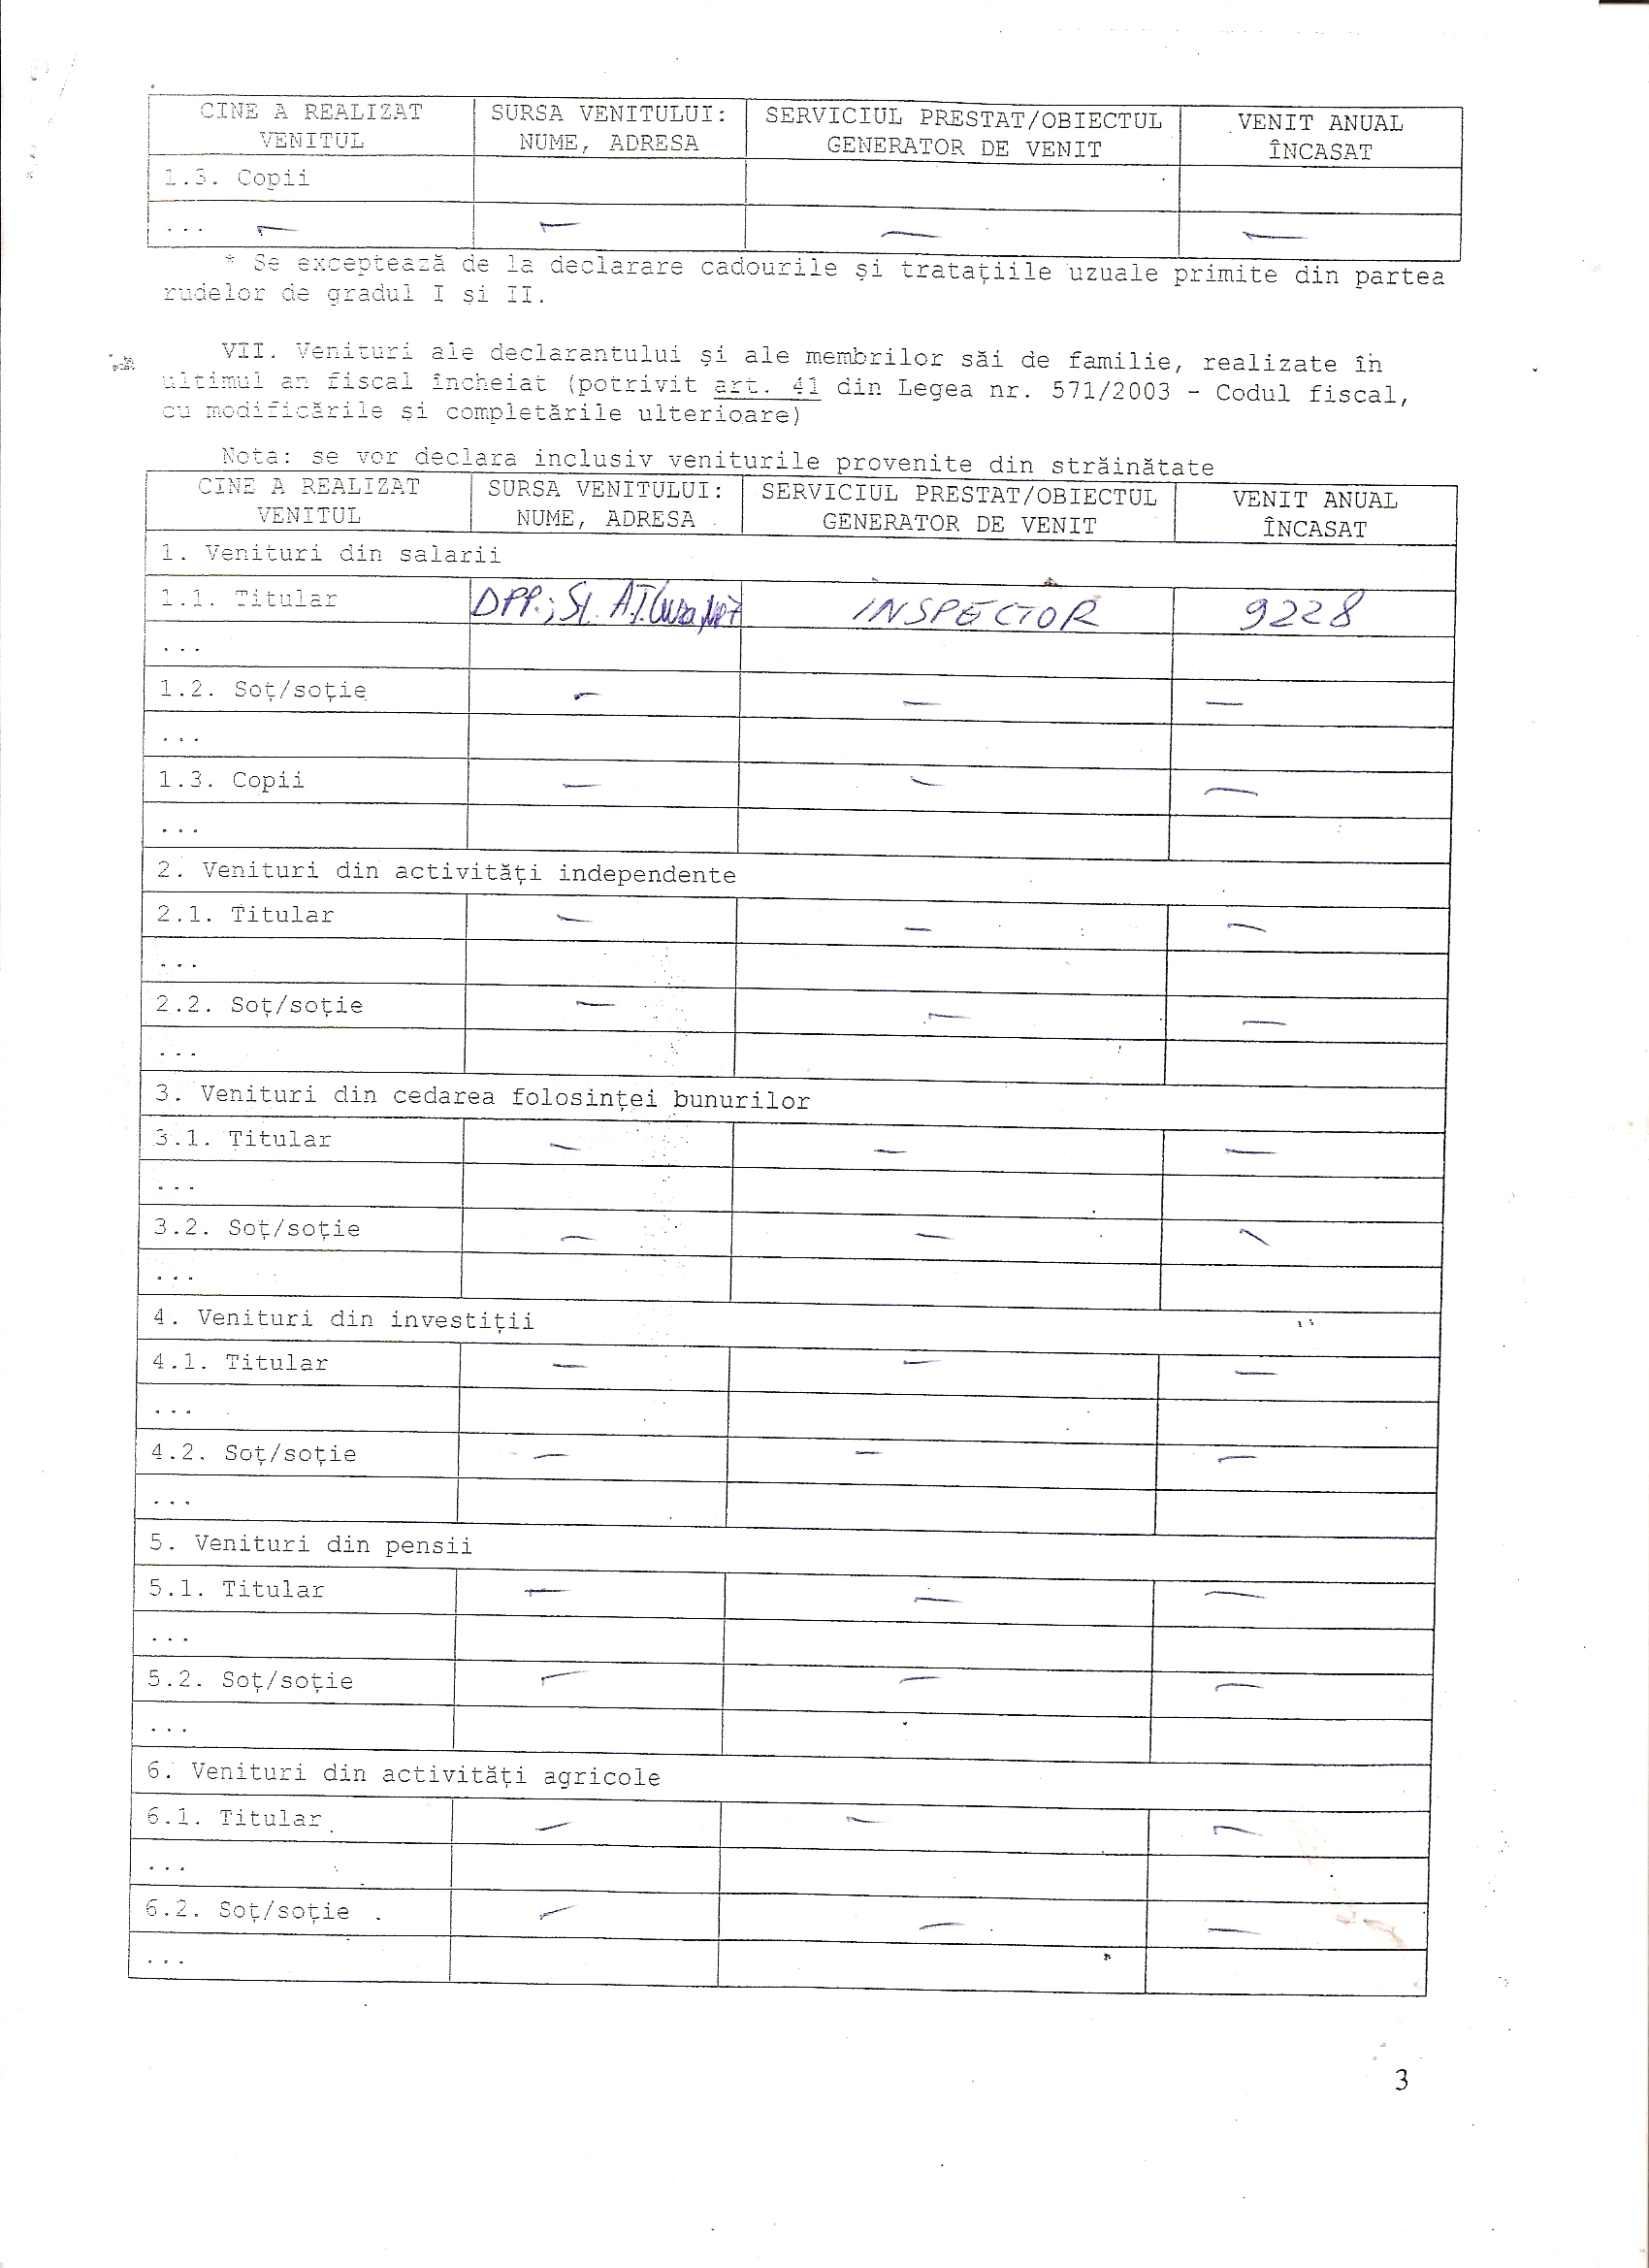 CINE A REALIZAT VENITUL SURSA VENITULUI: NUME, ADRESA SERVICIUL PRESTAT/OBIECTUL GENERATOR DE VENIT VENIT ANUAL ÎNCASAT
1.3. Copii
... — — — —
* Se exceptează de la declarare cadourile și tratațiile uzuale primite din partea
rudelor de gradul I și II.
VII. Venituri ale declarantului și ale membrilor săi de familie, realizate în
ultimul an fiscal încheiat (potrivit art. 41 din Legea nr. 571/2003 - Codul fiscal,
cu modificările și completările ulterioare)
Nota: se vor declara inclusiv veniturile provenite din străinătate
CINE A REALIZAT VENITUL SURSA VENITULUI: NUME, ADRESA SERVICIUL PRESTAT/OBIECTUL GENERATOR DE VENIT VENIT ANUAL ÎNCASAT
1. Venituri din salarii
1.1. Titular DPP.; St. A.I. Cuza INSPECTOR 9228
...
1.2. Soț/soție — — —
...
1.3. Copii — — —
...
2. Venituri din activități independente
2.1. Titular — — —
...
2.2. Soț/soție — — —
...
3. Venituri din cedarea folosinței bunurilor
3.1. Titular — — —
...
3.2. Soț/soție — — —
...
4. Venituri din investiții
4.1. Titular — — —
...
4.2. Soț/soție — — —
...
5. Venituri din pensii
5.1. Titular — — —
...
5.2. Soț/soție — — —
...
6. Venituri din activități agricole
6.1. Titular — — —
...
6.2. Soț/soție — — —
...
3